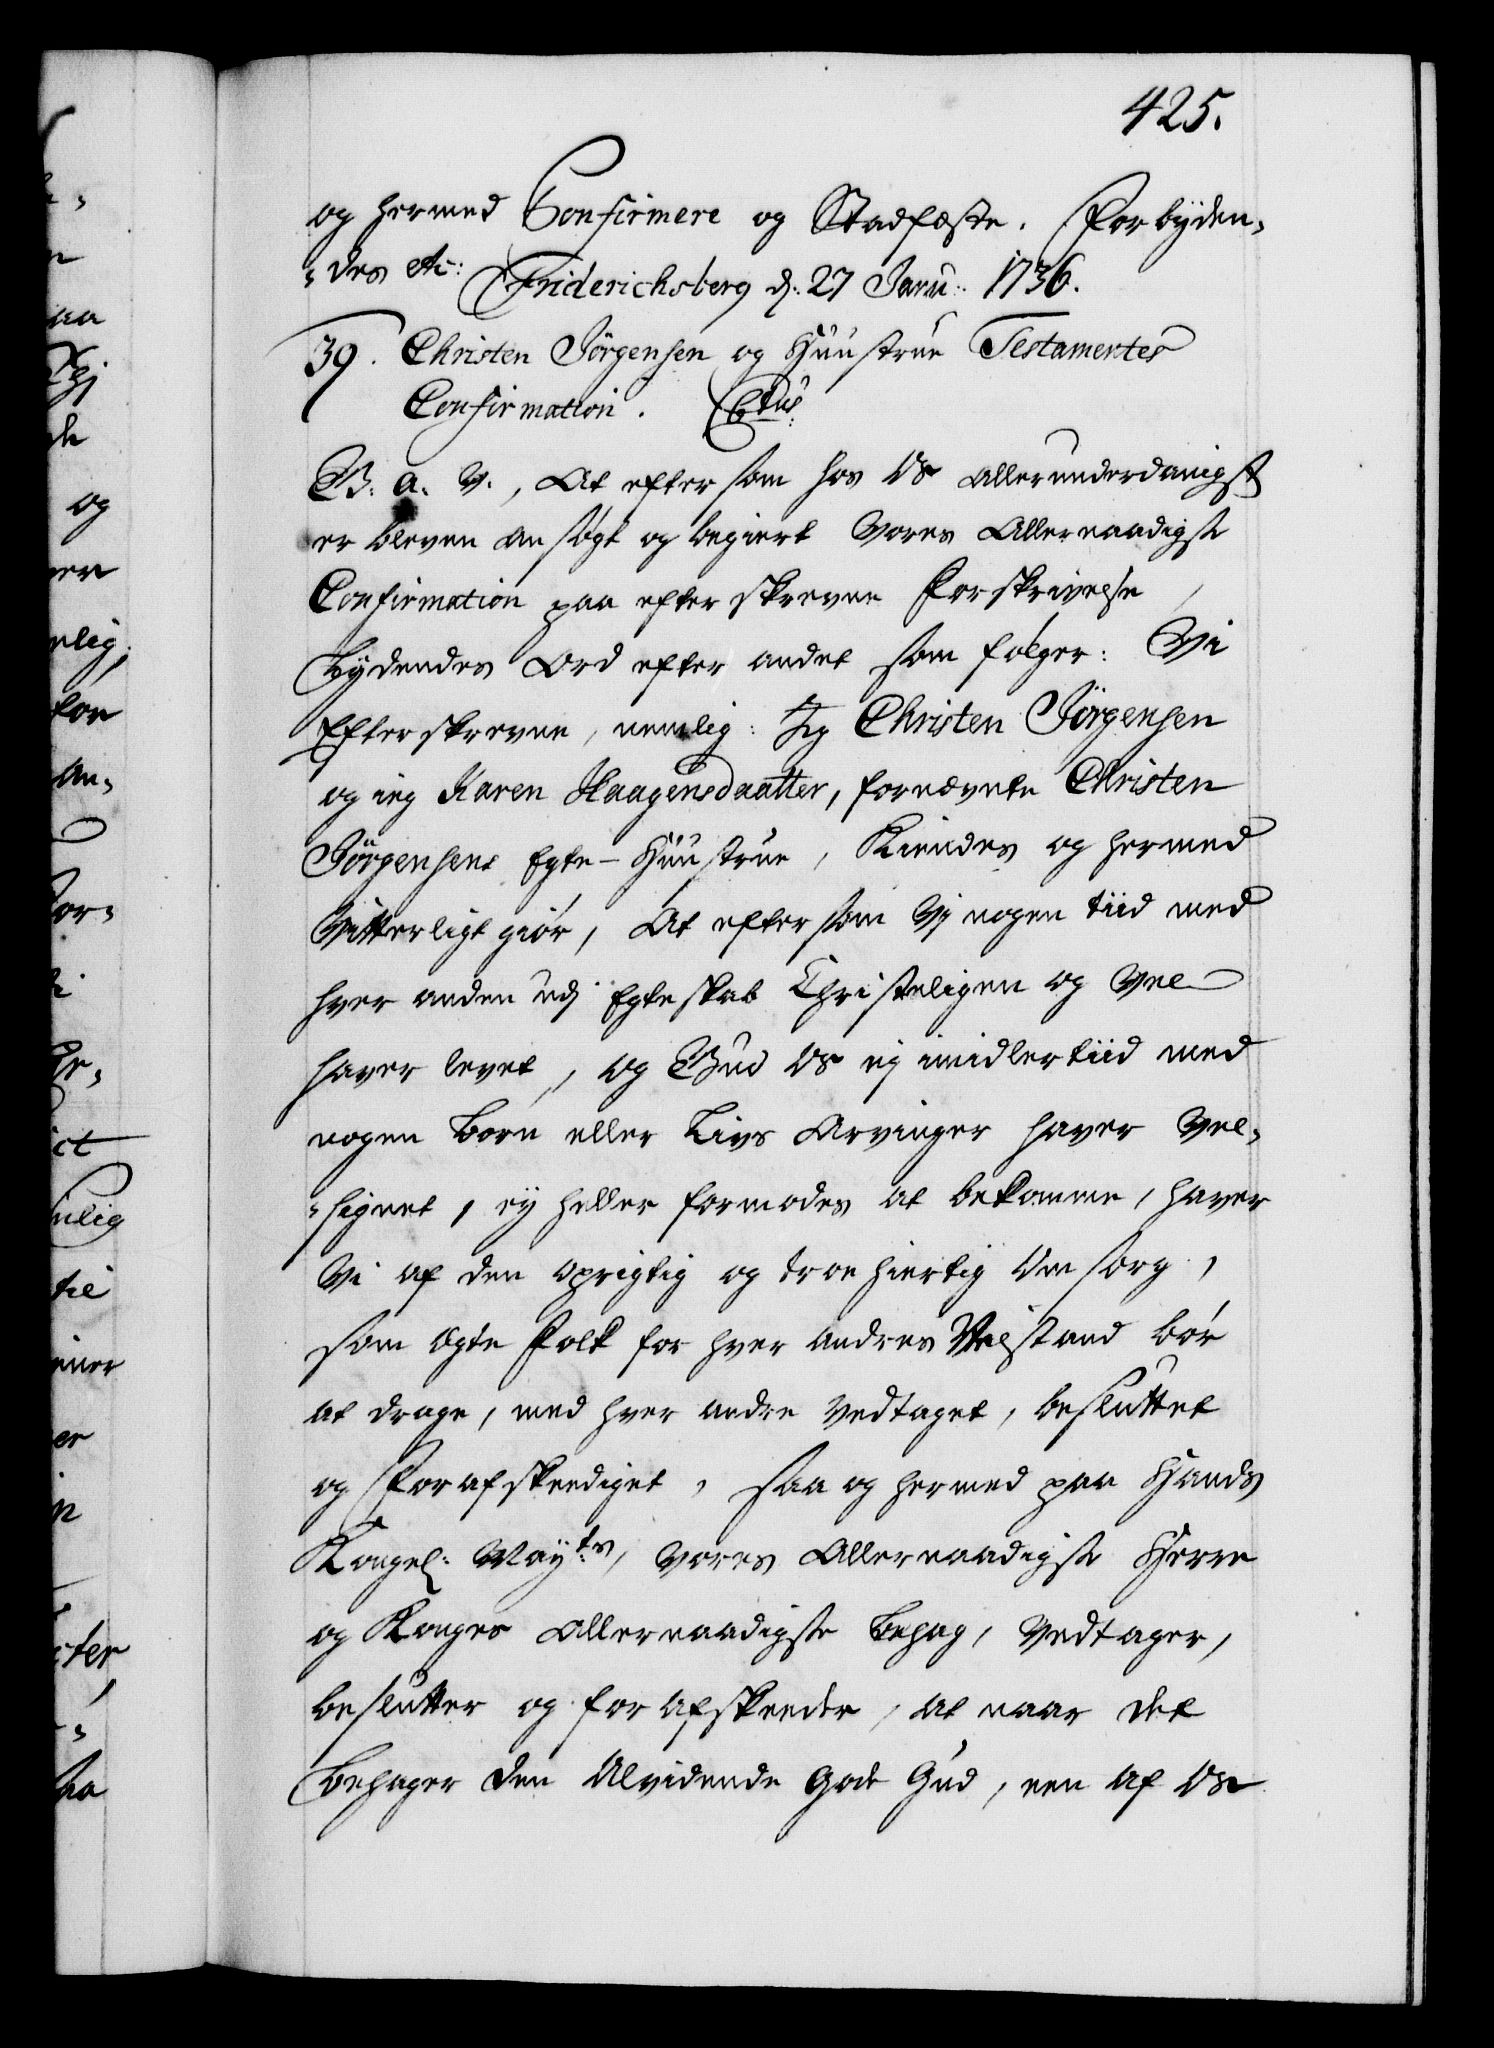 425.
og hermed Confirmere og Stadfæste. Forbÿden¬
¬des etc: Friderichsberg d: 27 Janu: 1736.
39. Christen Jörgensen og Huustrue Testamentes
Confirmation.
G: a. V., At eftersom hos Os allerunderdanigst
er bleven ansøgt og begiert Vores Allernaadigste
Confirmation paa efterskrevne Forskrivelse,
Lydendes Ord efter andet som følger: Vi
Efterskrevne, nemlig: Jeg Christen Jörgensen
og ieg Karen Haagensdaatter, forne​vnte Christen
Jörgensens Egte-Huustrue, Kiendes og hermed
Vitterligt giør, At eftersom Vj nogen tiid med
hver anden udj Egteskab Christeligen og Vel
haver levet, og Gud Os ej imidlertiid med
nogen Børn eller Livs Arvinger haver Vel¬
¬signet, ej heller formodes at bekomme, haver
Vi af den oprigtig og troehiertig Omsorg,
som Ægte Folk for hver andres Velstand bør
at drage, med hver andre Vedtaget, besluttet
og Forafskeediget, saa og hermed paa Hands
Kongel: Mayts, Vores Allernaadigste Herre
og Konges Allernaadigste Behag, Vedtager,
beslutter og forafskeeder, at naar det
behager den Alvidende Gode Gud, een af Os